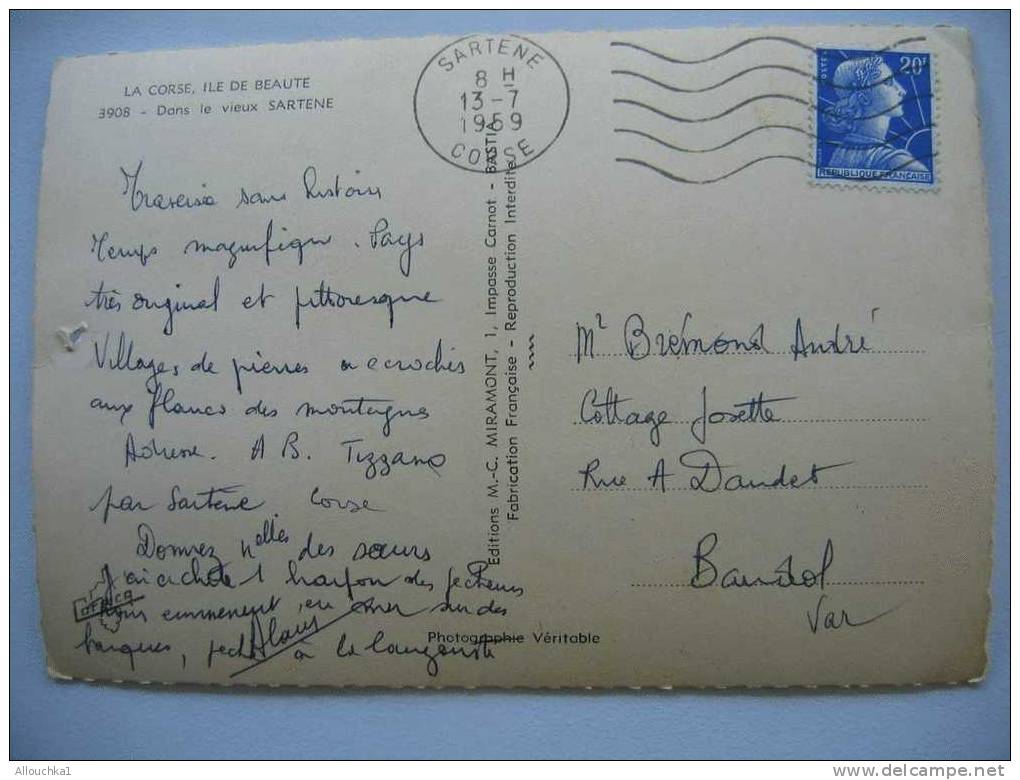 LA CORSE, ILE DE BEAUTE
3908 - Dans le vieux SARTENE
SARTENE
8 H
13-7
1959
CORSE
POSTES
20F
REPUBLIQUE FRANÇAISE
Traversée sans histoire
Temps magnifique. Pays
très original et pittoresque
Villages de pierres accrochés
aux flancs des montagnes
Adresse. A B. Tizzano
par Sartène Corse
Donnez nelles des sœurs
J'ai acheté 1 harpon des pêcheurs
emmenent en mer sur des
barques, à la langouste
Alain
Editions M.-C. MIRAMONT, 1, Impasse Carnot - BASTIA
Fabrication Française - Reproduction Interdite
Mr Brémond André
Cottage Josette
Rue A Daudet
Bandol
Var
Photographie Véritable
Allouchka1